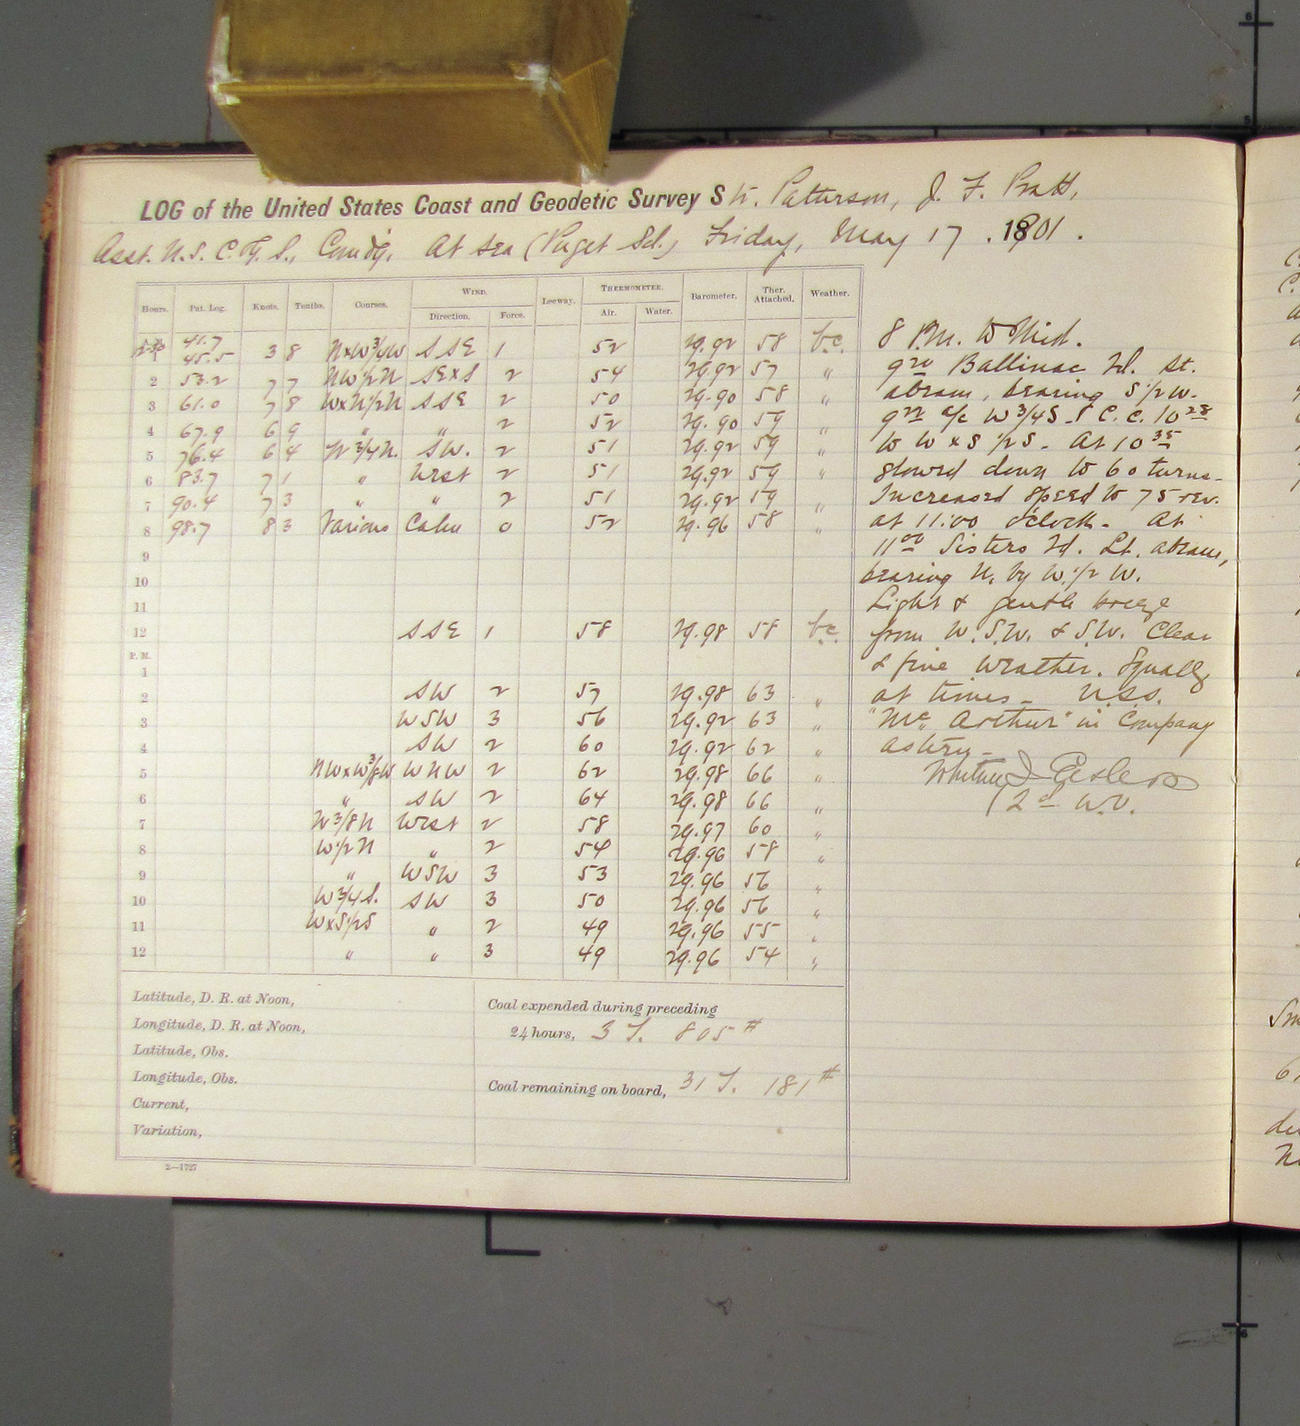 LOG of the United States Coast and Geodetic Survey Str. Patterson, J. F. Pratt,
Asst. U.S.C.&G.S., Comd'g, At sea (Puget Sd.) Friday, May 17, 1901.
Hours. Pat. Log. Knots. Tenths. Courses. Wind. Leeway. Thermometer. Barometer. Ther. Attached. Weather.
Direction. Force. Air. Water.
41.7
45.5 3 8 NxW3/4W SSE 1 52 29.92 58 b.c.
2 53.2 7 7 NW1/2N SExS 2 54 29.92 57 "
3 61.0 7 8 WxN1/2N SSE 2 50 29.90 58 "
4 67.9 6 9 " " 2 52 29.90 59 "
5 76.4 6 4 W3/4N. SW. 2 51 29.92 59 "
6 83.7 7 1 " West 2 51 29.92 59 "
7 90.4 7 3 " " 2 51 29.92 59 "
8 98.7 8 3 Various Calm 0 52 29.96 58 "
9
10
11
12 SSE 1 58 29.98 58 b.c.
P.M.
1
2 SW 2 57 29.98 63 "
3 WSW 3 56 29.92 63 "
4 SW 2 60 29.92 62 "
5 NWxW3/8W WNW 2 62 29.98 66 "
6 " SW 2 64 29.98 66 "
7 W3/8N West 2 58 29.97 60 "
8 W1/2N " 2 54 29.96 58 "
9 " WSW 3 53 29.96 56 "
10 W3/4S. SW 3 50 29.96 56 "
11 WxS1/2S " 2 49 29.96 55 "
12 " " 3 49 29.96 54 "
Latitude, D. R. at Noon,
Longitude, D. R. at Noon,
Latitude, Obs.
Longitude, Obs.
Current,
Variation,
Coal expended during preceding
24 hours, 3 T. 805 #
Coal remaining on board, 31 T. 181 #
2—1727
8 P.M. to Mid.
9 20 Ballinac Id. Lt.
abeam, bearing S 1/2 W.
9 22 a/c W 3/4 S. C.C. 10 28
to W x S 1/2 S - At 10 35
slowed down to 60 turns-
Increased speed to 75 rev.
at 11:00 o'clock - At
11 00 Sisters Id. Lt. abeam,
bearing N. by W. 1/2 W.
Light & gentle breeze
from W.S.W. & S.W. Clear
& fine weather. Squally
at times - U.S.S.
"McArthur" in Company
astern -
Whitney I.
2d W.O.